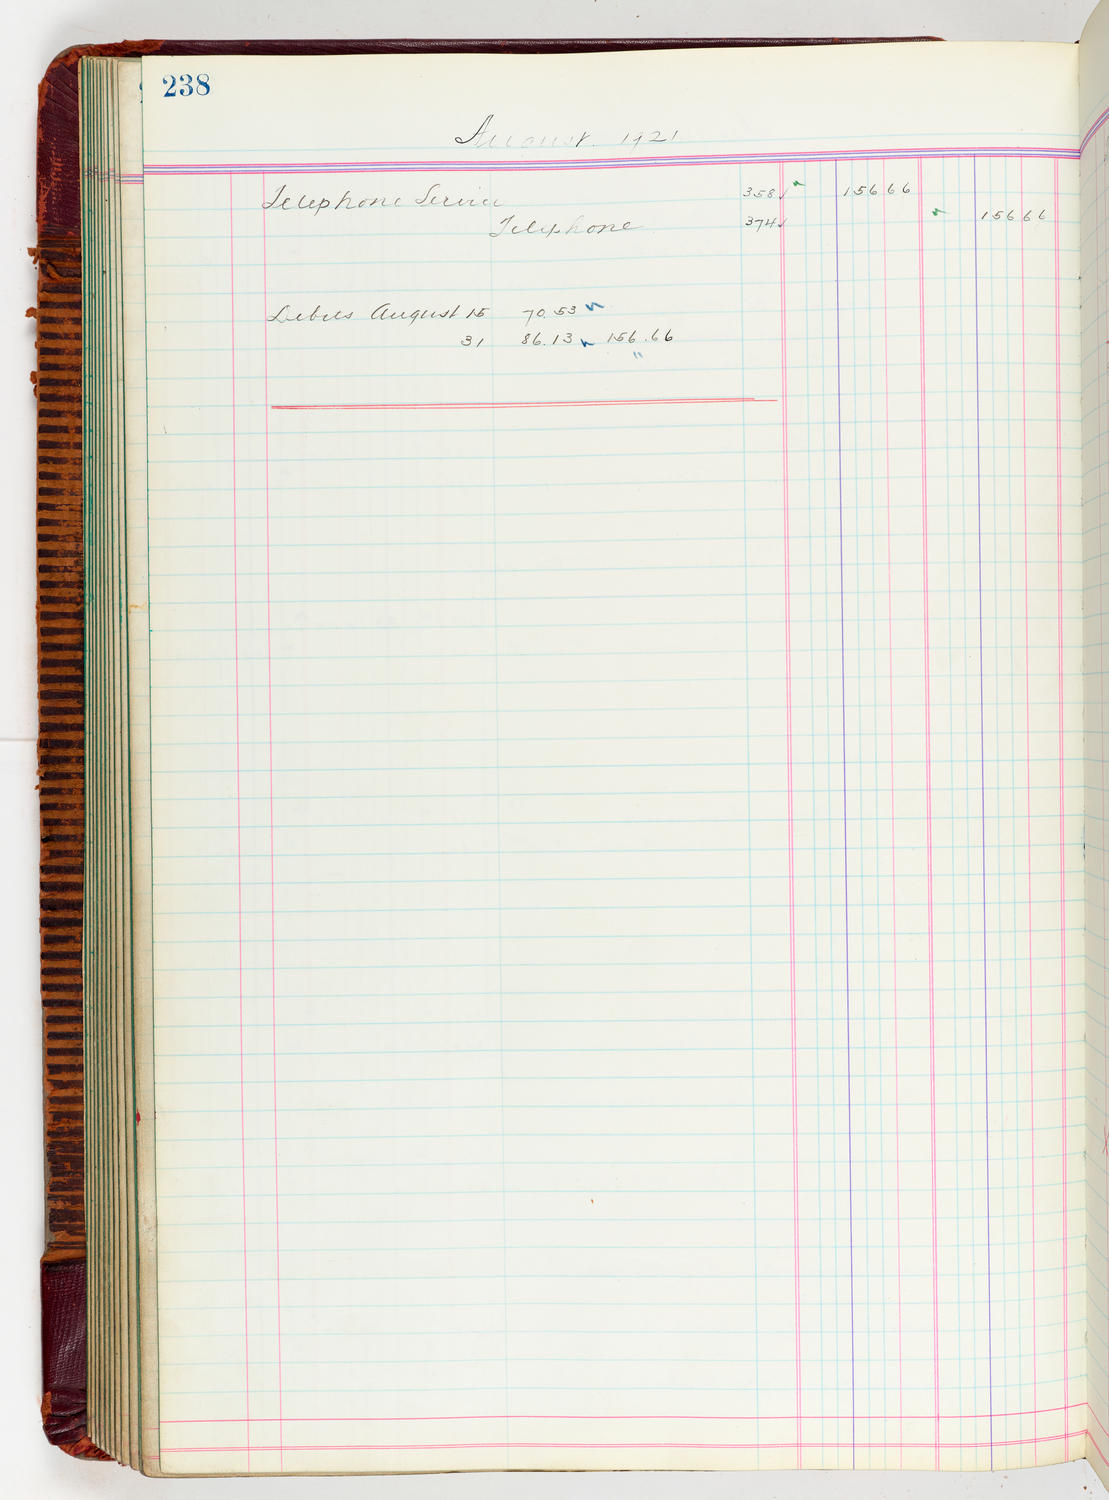 238
August. 1921
Telephone Service 358 156 66
Telephone 374 156 66
Debits August 15 70.53
31 86.13 156.66